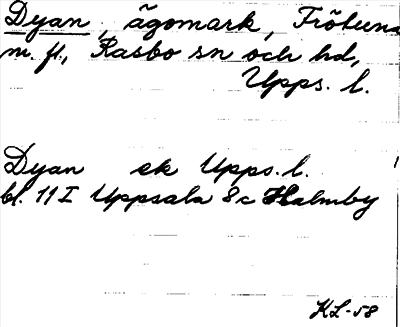 Dyan, ägomark, Frötuna
m. fl., Rasbo sn och hd,
Upps. l.
Dyan ek Upps. l.
bl. 11 I Uppsala 8c Halmby
KL-58